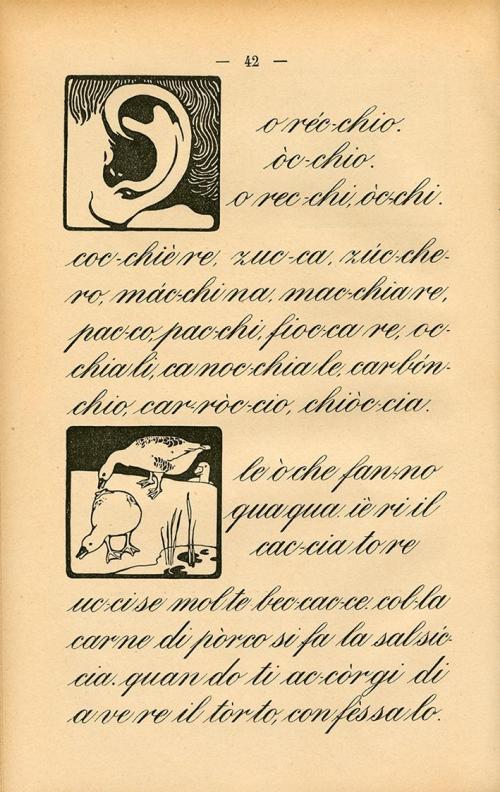 — 42 —
o réc-chio.
òc-chio.
o rec-chi, òc-chi.
coc-chiè re, zuc-ca, zúc-che-
ro, mác-chi na, mac-chia re,
pac-co, pac-chi, fioc-ca re, oc-
chia li, ca noc-chia le, car bón-
chio, car-ròc-cio, chiòc-cia.
le ò che fan-no
qua qua. ië ri il
cac-cia to re
uc-ci se mol te bec-cac-ce. col-la
carne di pòrco si fa la sal síc-
cia. quan do ti ac-còrgi di
a ve re il tòr to, con fès sa lo.